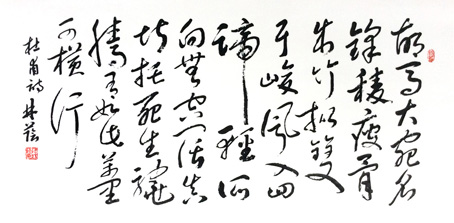 胡馬大宛名
鋒稜瘦骨
成竹批雙
耳峻風入四
蹄輕所
向無空闊真
堪托死生驍
騰有如此萬里
可橫行
杜甫詩